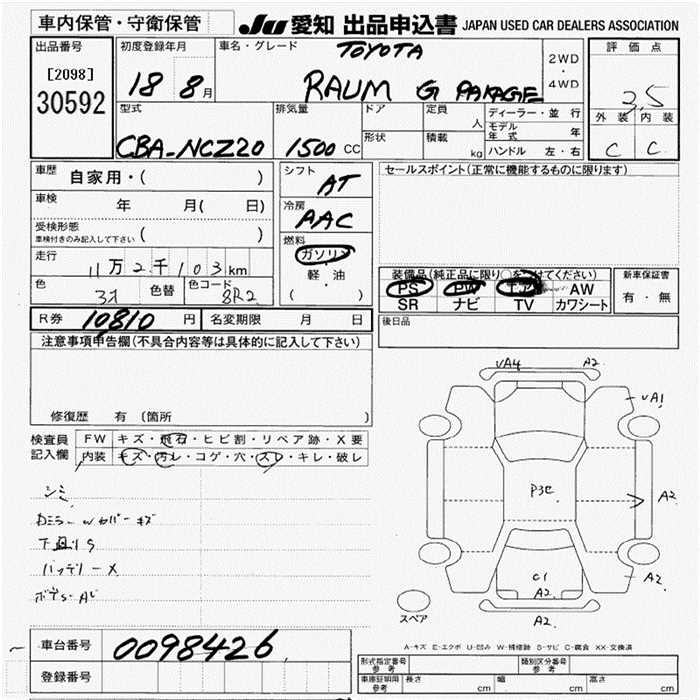 車内保管・守衛保管
JU 愛知 出品申込書 JAPAN USED CAR DEALERS ASSOCIATION
出品番号
[2098]
30592
初度登録年月
18 8月
車名・グレード
TOYOTA
RAUM G PAKAGE
2WD
・
4WD
評価点
3.5
外装 内装
C C
型式
CBA-NCZ20
排気量
1500 CC
ドア
形状
定員
人
積載
kg
ディーラー・並行
モデル年式 年
ハンドル 左・右
車歴
自家用・( )
車検
年 月( 日)
受検形態
車検付きのみ記入して下さい ( )
走行
11万2千103km
色
色替
色コード
8R2
シフト
AT
冷房
AAC
燃料
ガソリン
軽・油
( ・ )
セールスポイント(正常に機能するものに限ります)
装備品(純正品に限り○をつけてください)
PS PW エアB AW
SR ナビ TV カワシート
新車保証書
有・無
後日品
R券 10810 円
名変期限 月 日
注意事項申告欄(不具合内容等は具体的に記入して下さい)
修復歴 有 (箇所 )
検査員
記入欄
FW キズ・飛石・ヒビ割・リペア跡・X要
内装 キズ・汚レ・コゲ・穴・スレ・キレ・破レ
シミ
下廻りS
バッテリーX
UA4 A2
UA1
A2
A2
C1
A2
A2
スペア
A-キズ E-エクボ U-凹み W-補修跡 S-サビ C-腐食 XX-交換済
車台番号
0098426
登録番号
型式指定番号
参考
類別区分番号
参考
車庫証明用
参考
長さ cm
幅 cm
高さ cm